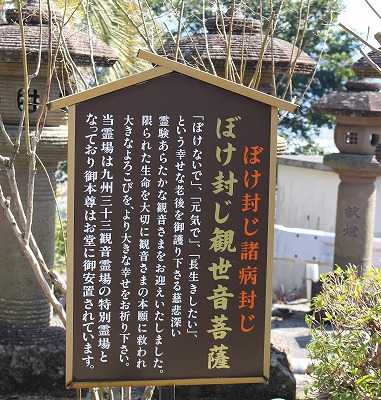 ぼけ封じ諸病封じ
ぼけ封じ観世音菩薩
「ぼけないで」、「元気で」、「長生きしたい」、
という幸せな老後を御護り下さる慈悲深い
霊験あらたかな観音さまをお迎えいたしました。
限られた生命を大切に観音さまの本願に救われ
大きなよろこびを、より大きな幸せをお祈り下さい。
当霊場は九州三十三観音霊場の特別霊場と
なっており御本尊はお堂に御安置されています。
献燈